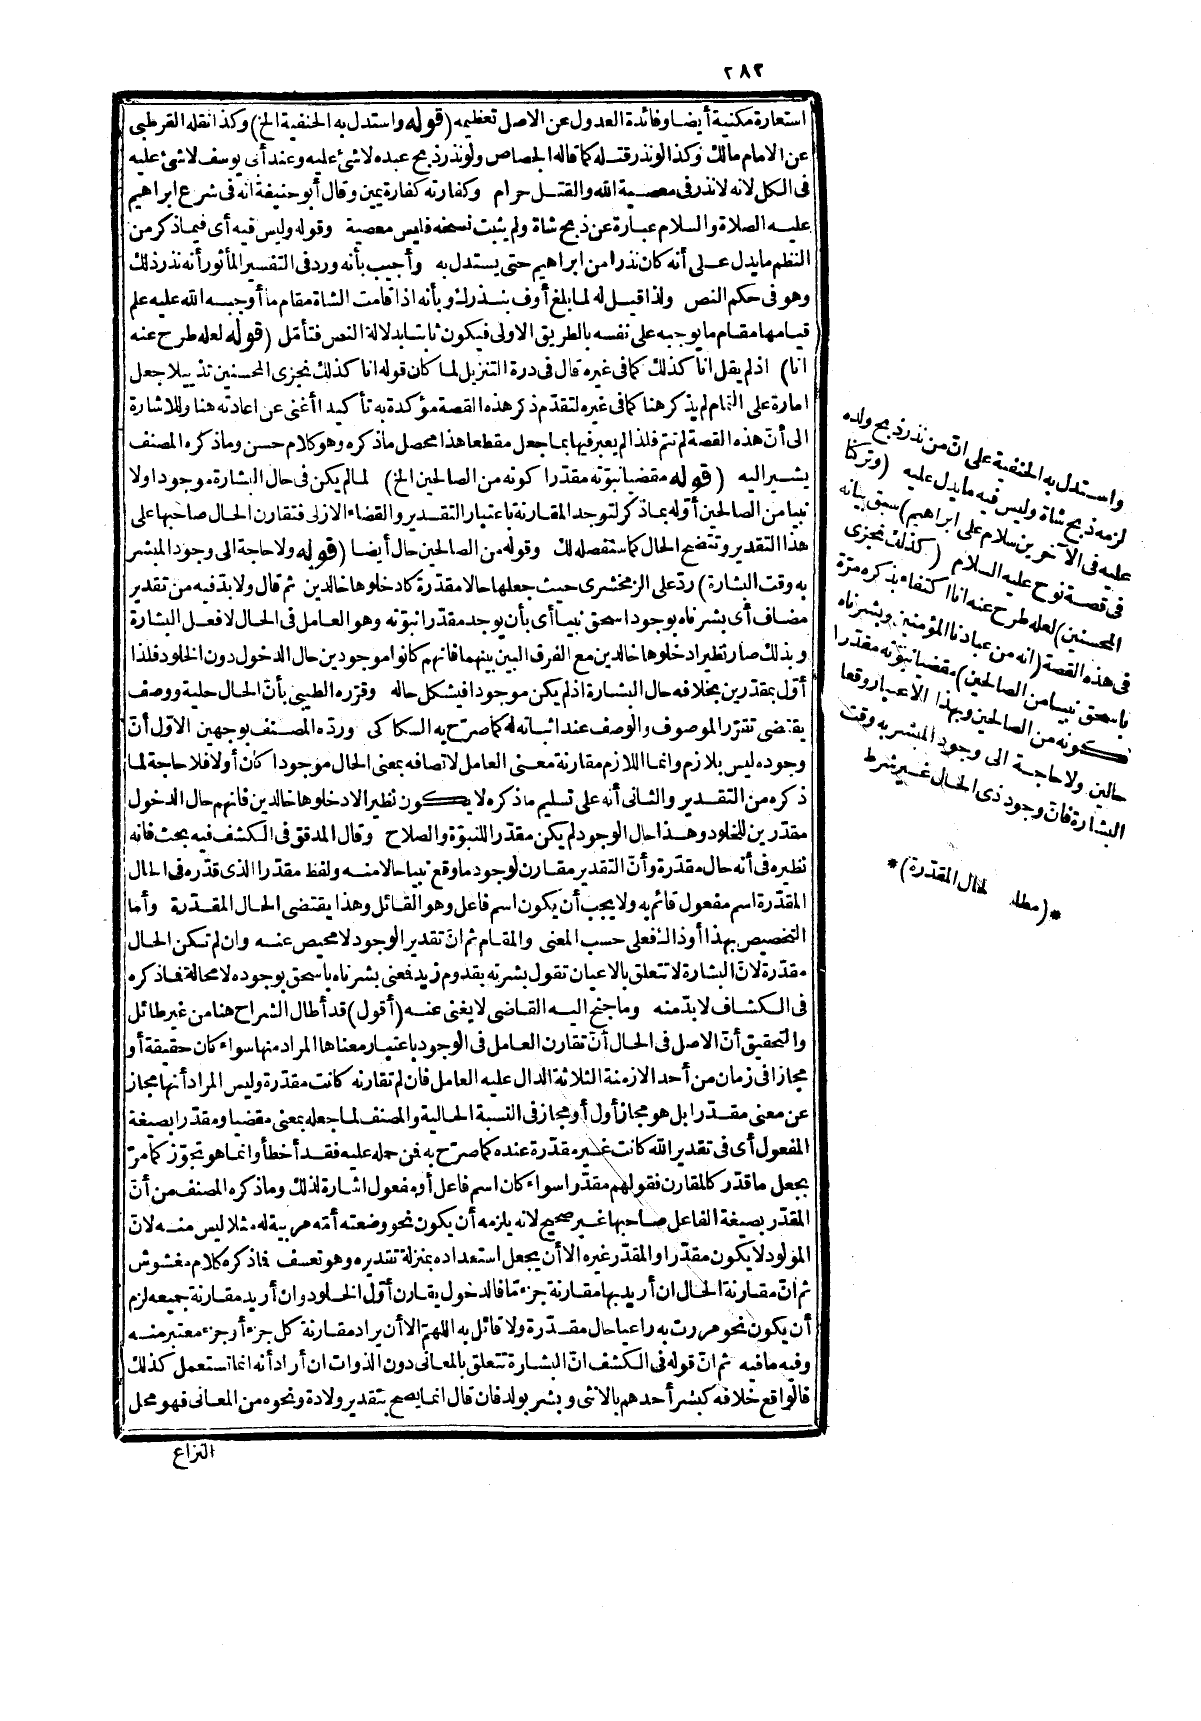 ٢٨٢
استعارة مكنية أيضا وفائدة العدول عن الاصل تعظيمه (قوله واستدل به الحنفية الخ) وكذا نقله القرطبى
عن الامام مالك وكذا لو نذر قتله كما قاله الجصاص ولو نذر ذبح عبده لا شئ عليه وعند أبى يوسف لا شئ عليه
فى الكل لانه لا نذر فى معصية الله والقتل حرام وكفارته كفارة يمين وقال أبو حنيفة انه فى شرع ابراهيم
عليه الصلاة والسلام عبارة عن ذبح شاة ولم يثبت نسخه فليس معصية وقوله وليس فيه أى فيما ذكر من
النظم ما يدل على أنه كان نذرا من ابراهيم حتى يستدل به وأجيب بأنه ورد فى التفسير المأثور أنه نذر ذلك
وهو فى حكم النص ولذا قيل له لما بلغ أوف بنذرك وبأنه اذا قامت الشاة مقام ما أوجبه الله عليه علم
قيامها مقام ما يوجبه على نفسه بالطريق الاولى فيكون ثابتا بدلالة النص فتأمل (قوله لعله طرح عنه
انا) اذ لم يقل انا كذلك كما فى غيره قال فى درة التنزيل لما كان قوله انا كذلك نجزى المحسنين تذييلا جعل
امارة على التمام لم يذكر هنا كما فى غيره لتقدم ذكر هذه القصة مؤكدة به تأكيدا أغنى عن اعادته هنا وللاشارة
الى أنّ هذه القصة لم تتم فلذا لم يعبر فيها بما جعل مقطعا هذا محصل ما ذكره وهو كلام حسن وما ذكره المصنف
يشير اليه (قوله مقضيا نبوّته مقدّرا كونه من الصالحين الخ) لما لم يكن فى حال البشارة موجودا ولا
نبيا من الصالحين أوله بما ذكر لتوجد المقارنة باعتبار التقدير والقضاء الازلى فتقارن الحال صاحبها على
هذا التقدير وتتضح الحال كما ستفصله لك وقوله من الصالحين حال أيضا (قوله ولا حاجة الى وجود المبشر
به وقت البشارة) ردّ على الزمخشرى حيث جعلها حالا مقدرة كادخلوها خالدين ثم قال ولا بدّ فيه من تقدير
مضاف أى بشرناه بوجود اسحق نبيا أى بأن يوجد مقدّرا نبوّته وهو العامل فى الحال لا فعل البشارة
وبذلك صار نظير ادخلوها خالدين مع الفرق البين بينهما فانهم كانوا موجودين حال الدخول دون الخلود فلذا
أوّل بمقدرين بخلافه حال البشارة اذ لم يكن موجودا فيشكل حاله وقرّره الطيبى بأنّ الحال حلية ووصف
يقتضى تقرّر الموصوف والوصف عند اثباته له كما صرّح به السكاكى وردّه المصنف بوجهين الاوّل أنّ
وجوده ليس بلازم وانما اللازم مقارنة معنى العامل لاتصافه بمعنى الحال موجودا كان أولا فلا حاجة لما
ذكره من التقدير والثانى أنه على تسليم ما ذكره لا يكون نظير الادخلوها خالدين فانهم حال الدخول
مقدرين للخلود وهذا حال الوجود لم يكن مقدّر اللنبوّة والصلاح وقال المدقق فى الكشف فيه بحث فانه
نظيره فى أنه حال مقدّرة وأنّ التقدير مقارن لوجود ما وقع نبيا حالا منه ولفظ مقدرا الذى قدّره فى الحال
المقدّرة اسم مفعول قائم به ولا يجب أن يكون اسم فاعل وهو القائل وهذا يقتضى الحال المقدّرة وأما
التخصيص بهذا أو ذاك فعلى حسب المعنى والمقام ثم انّ تقدير الوجود لا محيص عنه وان لم تكن الحال
مقدّرة لانّ البشارة لا تتعلق بالاعيان تقول بشرته بقدوم زيد فعنى بشرناه باسحق بوجوده لا محالة فما ذكره
فى الكشاف لا بدّ منه وما جنح اليه القاضى لا يغنى عنه (أقول) قد أطال الشراح هنا من غير طائل
والتحقيق أنّ الاصل فى الحال أنّ تقارن العامل فى الوجود باعتبار معناها المراد منها سواء كان حقيقة أو
مجازا فى زمان من أحد الازمنة الثلاثة الدال عليه العامل فان لم تقارنه كانت مقدّرة وليس المراد أنها مجاز
عن معنى مقدّرا بل هو مجاز أول أو مجاز فى النسبة الحالية والمصنف لما جعله بمعنى مقضيا ومقدّرا بصيغة
المفعول أى فى تقدير الله كانت غير مقدّرة عنده كما صرّح به فمن حمله عليه فقد أخطأ وانما هو تجوّز كما مرّ
بجعل ما قدّر كالمقارن فقولهم مقدّرا سواء كان اسم فاعل أو مفعول اشارة لذلك وما ذكره المصنف من أنّ
المقدّر بصيغة الفاعل صاحبها غير صحيح لانه يلزمه أن يكون نحو وضعته أمّه هربية له مثلا ليس منه لانّ
المولود لا يكون مقدّرا والمقدّر غيره الا أن يجعل استعداده بمنزلة تقديره وهو تعسف فما ذكره كلام مغشوش
ثم انّ مقارنة الحال ان أريد بها مقارنة جزء مّا فالدخول يقارن أوّل الخلود وان أريد مقارنة جميعه لزم
أن يكون نحو مررت به راعيا حال مقدّرة ولا قائل به اللهمّ الا أن يراد مقارنة كل جزء أو جزء معتبر منه
وفيه ما فيه ثم انّ قوله فى الكشف انّ البشارة تتعلق بالمعانى دون الذوات ان أراد أنه انما تستعمل كذلك
فالواقع خلافه كبشر أحدهم بالانثى وبشر بولد فان قال انما يصح بتقدير ولادة ونحوه من المعانى فهو محل
النزاع
واستدل به الحنفية على انّ من نذر ذبح ولده
لزمه ذبح شاة وليس فيه ما يدل عليه (وتركنا
عليه فى الآخرين سلام على ابراهيم) سبق بيانه
فى قصة نوح عليه السلام (كذلك نجزى
المحسنين) لعله طرح عنه انا اكتفاء بذكره مرّة
فى هذه القصة (انه من عبادنا المؤمنين وبشرناه
باسحق نبيا من الصالحين) مقضيا نبوّته مقدّرا
كونه من الصالحين وبهذا الاعتبار وقعا
حالين ولا حاجة الى وجود المبشر به وقت
البشارة فانّ وجود ذى الحال غير شرط
*(مطلب الحال المقدّرة)*